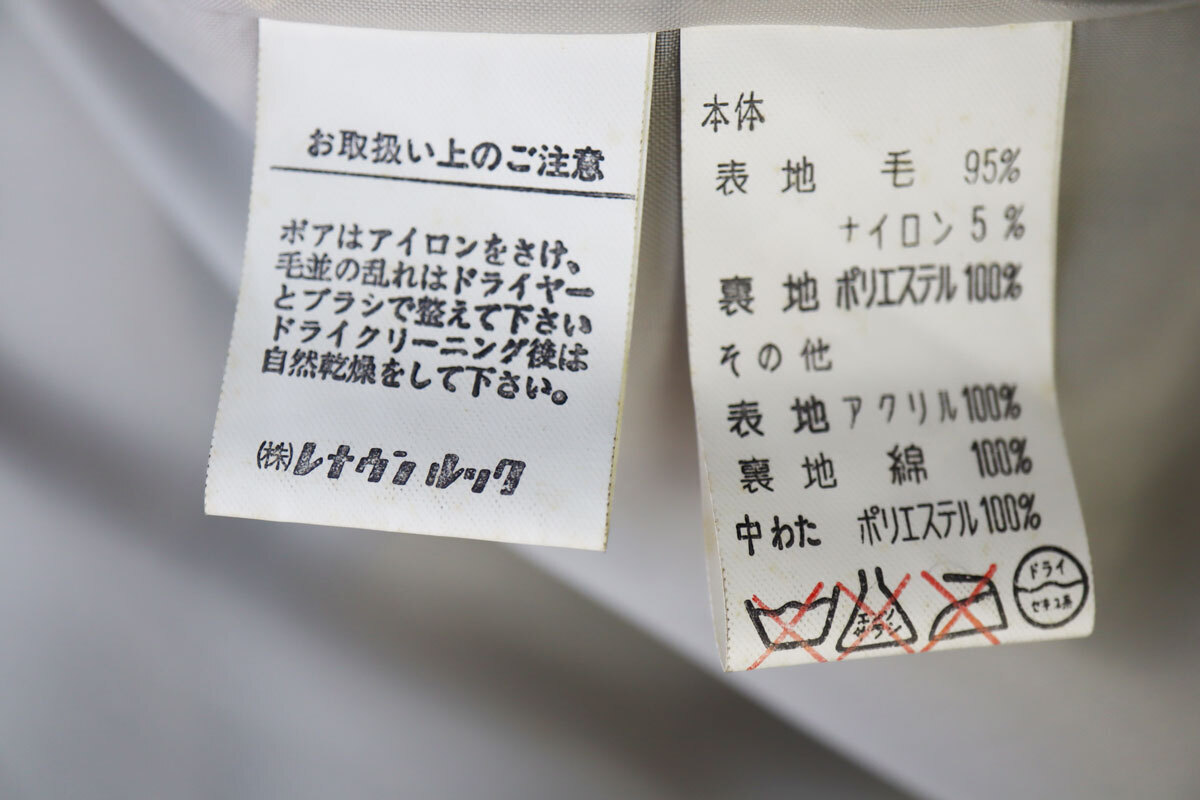 お取扱い上のご注意
ボアはアイロンをさけ、
毛並の乱れはドライヤー
とブラシで整えて下さい
ドライクリーニング後は
自然乾燥をして下さい。
(株)レナウンルック
本体
表地 毛 95%
ナイロン 5%
裏地 ポリエステル 100%
その他
表地 アクリル 100%
裏地 綿 100%
中わた ポリエステル 100%
エンソ
サラシ
ドライ
セキユ系